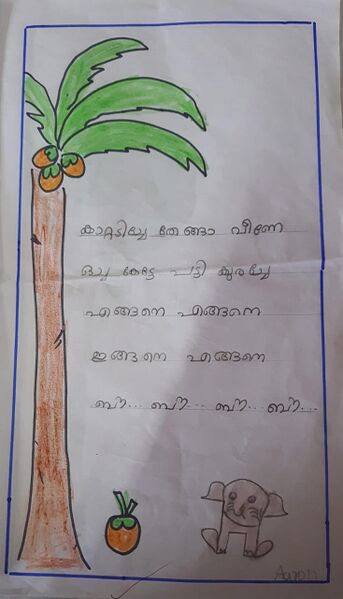 കാറ്റടിച്ചേ തേങ്ങാ വീണേ
ഒച്ച കേട്ടേ പട്ടി കുരച്ചേ
എങ്ങനെ എങ്ങനെ
ഇങ്ങനെ എങ്ങനെ
ബൗ... ബൗ... ബൗ... ബൗ...
Aaron